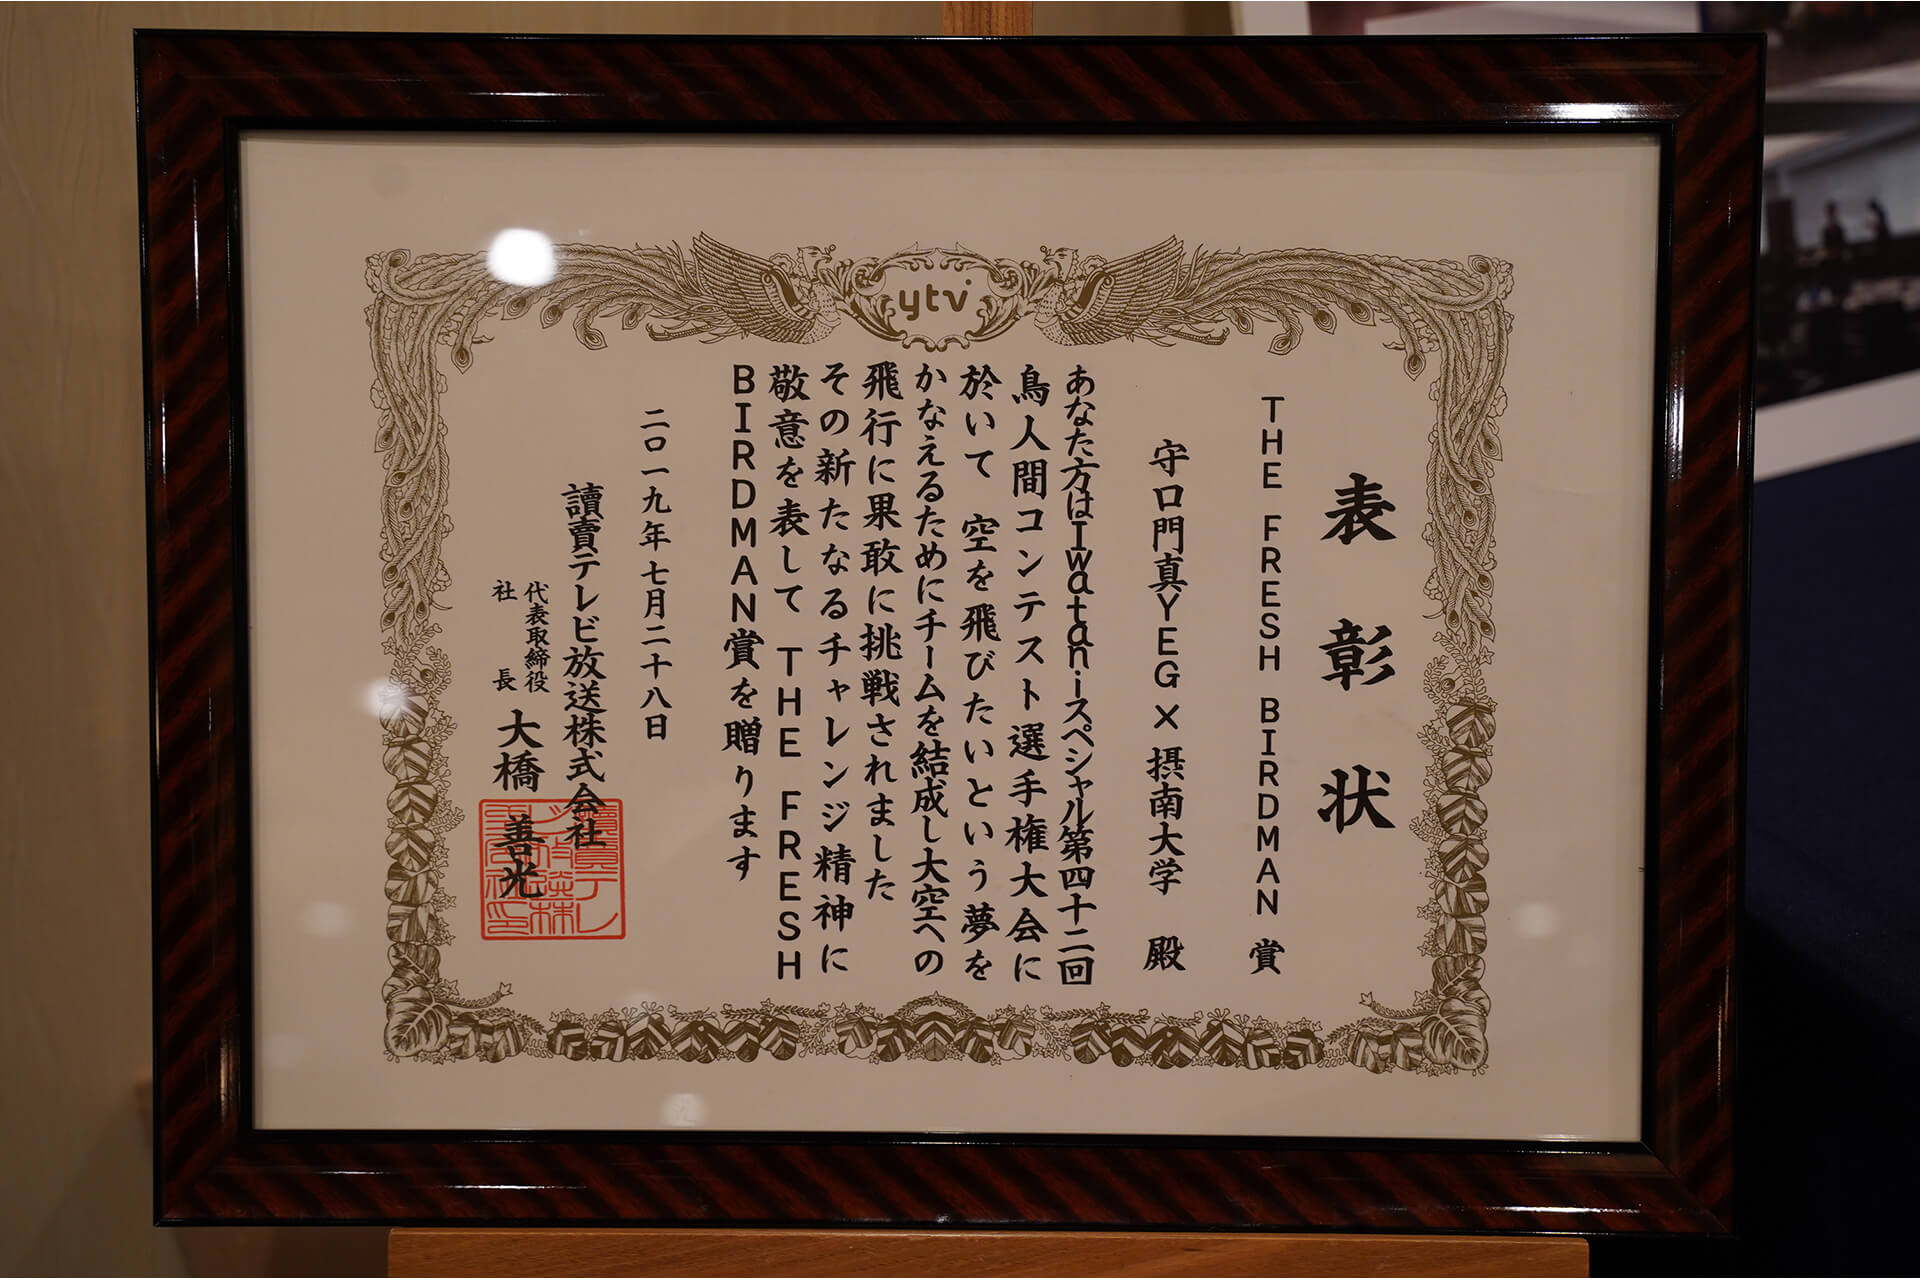 ytv
表彰状
THE FRESH BIRDMAN 賞
守口門真YEG×摂南大学 殿
あなた方はIwatani・スペシャル第四十二回
鳥人間コンテスト選手権大会に
於いて 空を飛びたいという夢を
かなえるためにチームを結成し大空への
飛行に果敢に挑戦されました
その新たなるチャレンジ精神に
敬意を表して THE FRESH
BIRDMAN賞を贈ります
二〇一九年七月二十八日
讀賣テレビ放送株式会社
代表取締役
社長 大橋 善光